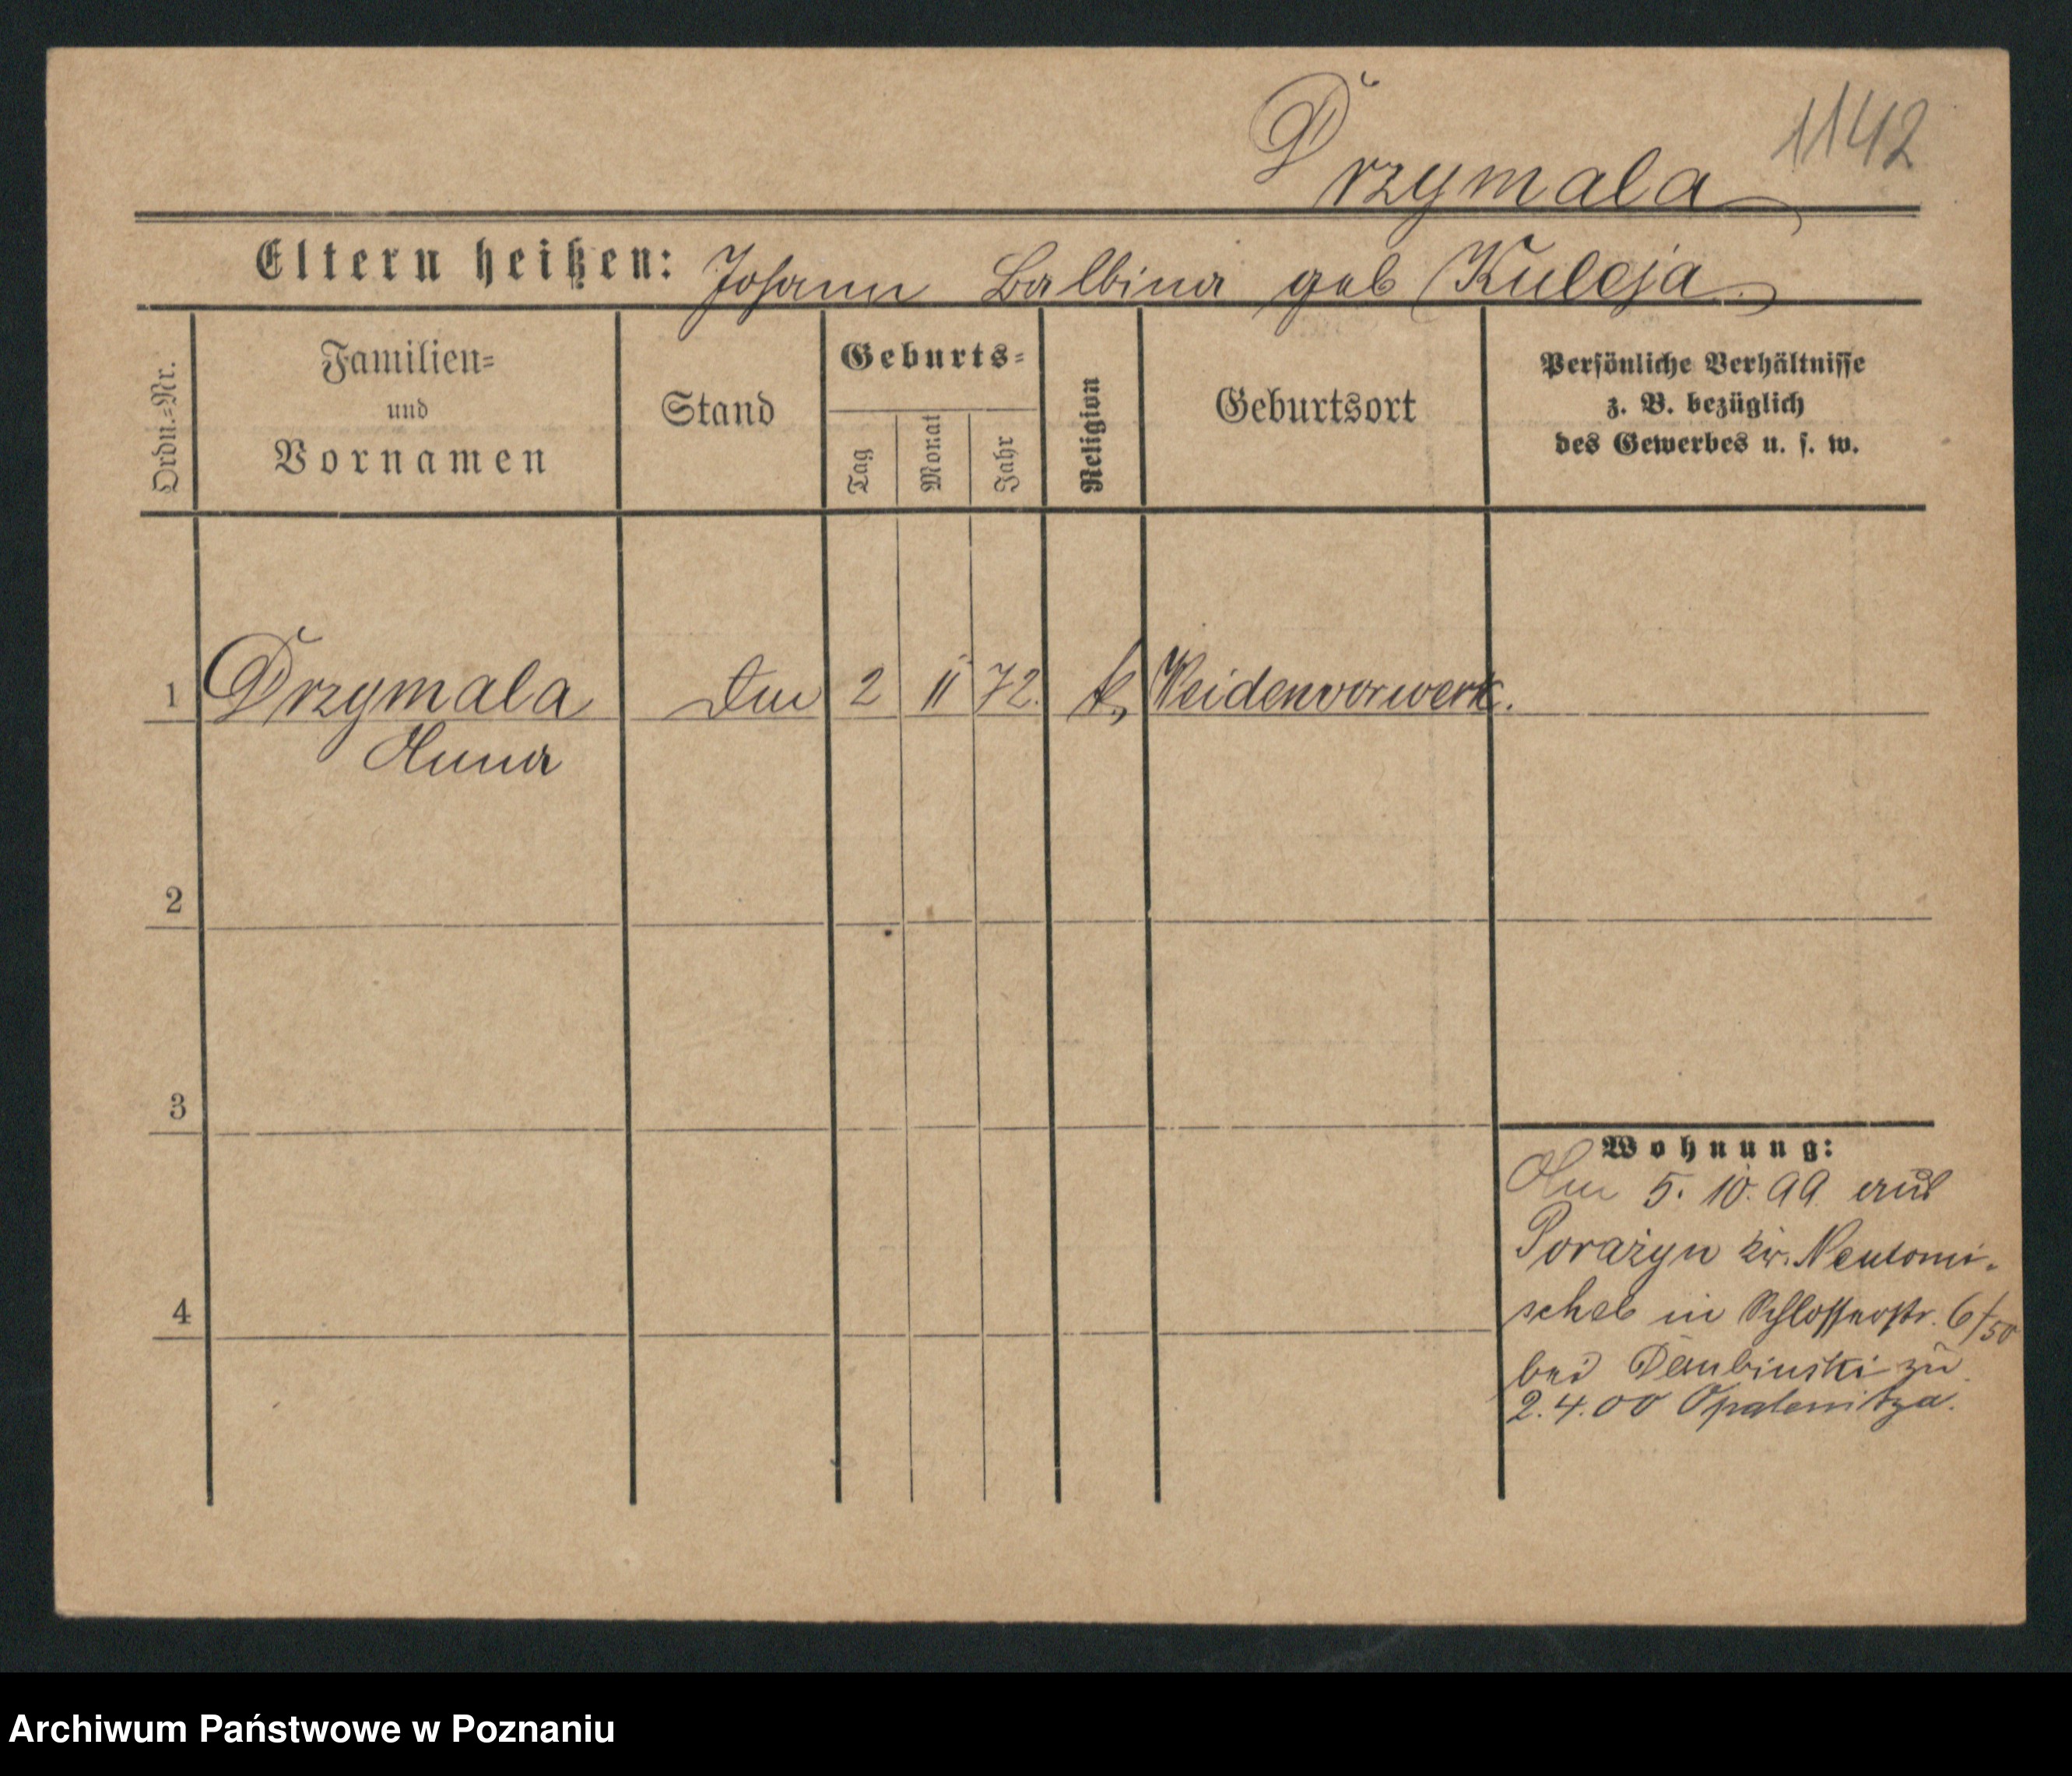 1142
Drzymala
Eltern heißen: Johann Balbina geb Kuleja.
Ordn.=Nr.
Familien=
und
Vornamen
Stand
Geburts=
Tag
Monat
Jahr
Religion
Geburtsort
Persönliche Verhältnisse
z. B. bezüglich
des Gewerbes u. s. w.
1 Drzymala 2 11 72. k. Weidenvorwerk.
Anna
2
3
4
Wohnung:
5. 10. 99 aus
Porażyn kr. Neutomi-
schel in Schlosserstr. 6/50
bei zu
2.4.00 Opalenitza.
Archiwum Państwowe w Poznaniu